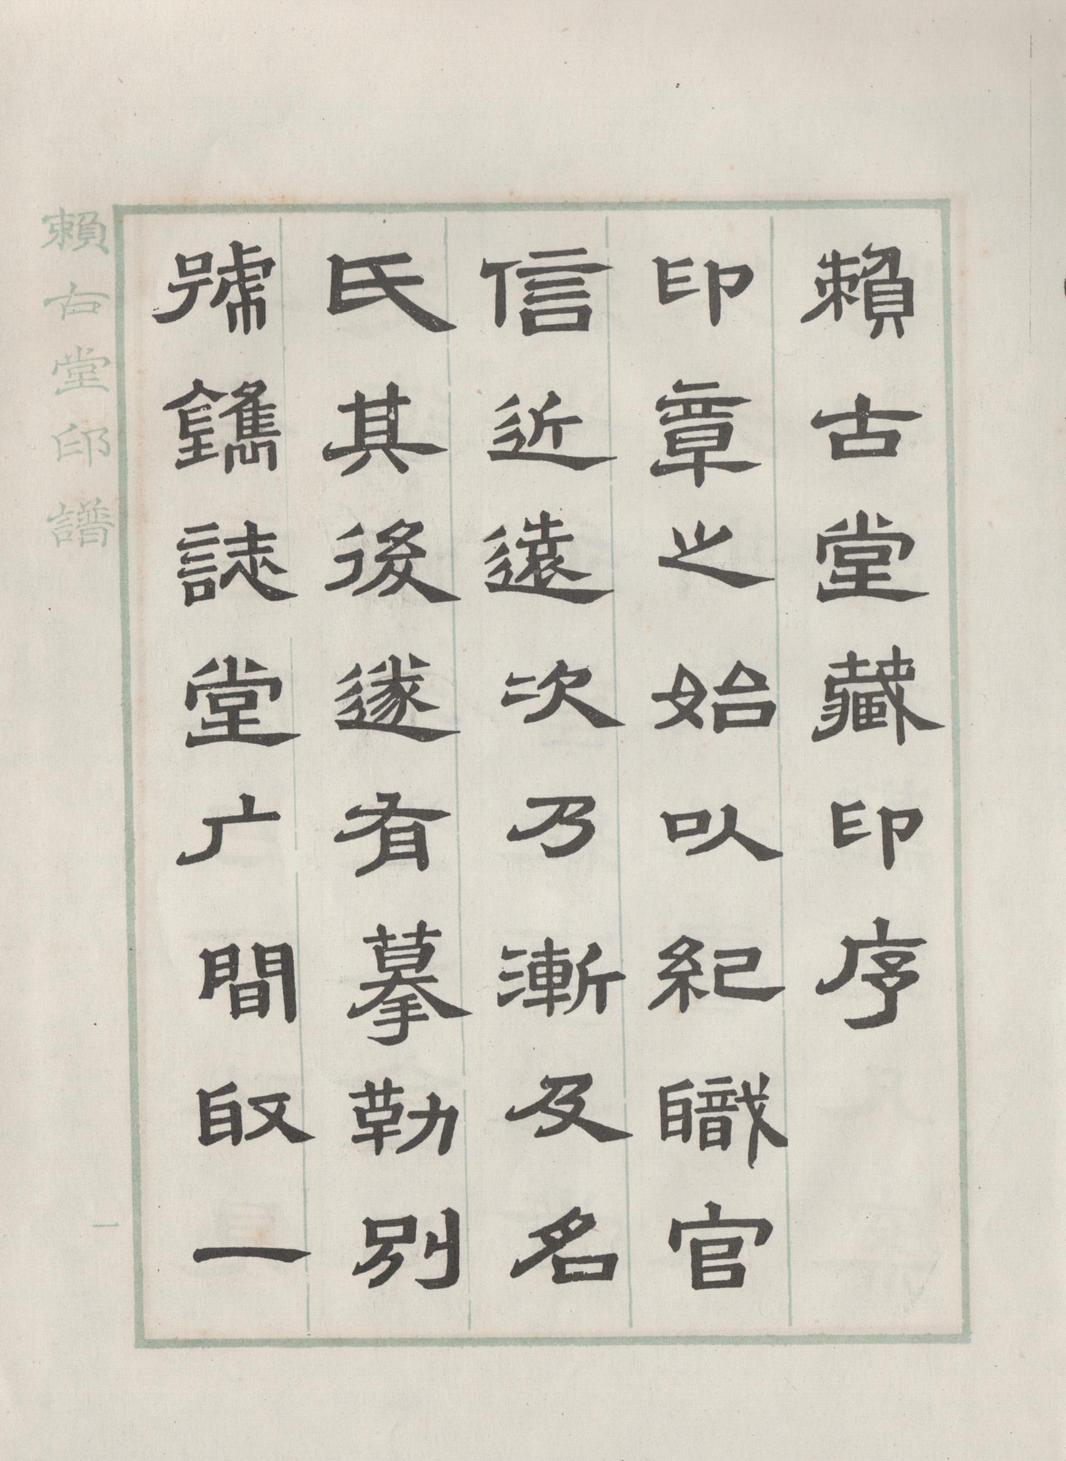 賴古堂藏印序
印章之始以紀職官
信近遠次乃漸及名
氏其後遂有摹勒別
號鐫誌堂广間取一
賴古堂印譜
一